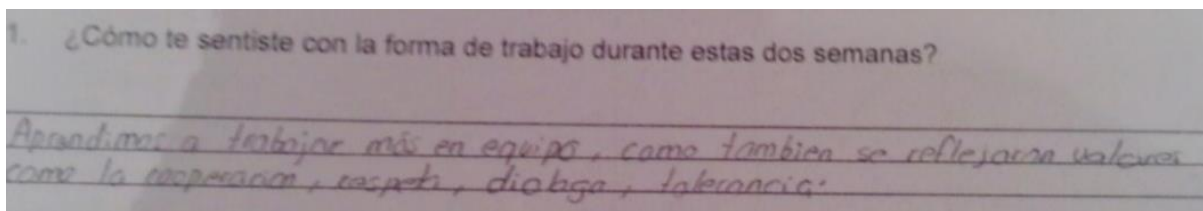 1. ¿Cómo te sentiste con la forma de trabajo durante estas dos semanas?
Aprendimos a trabajar más en equipo, como tambien se reflejaron valores
como la cooperacion, respeto, dialogo, tolerancia.